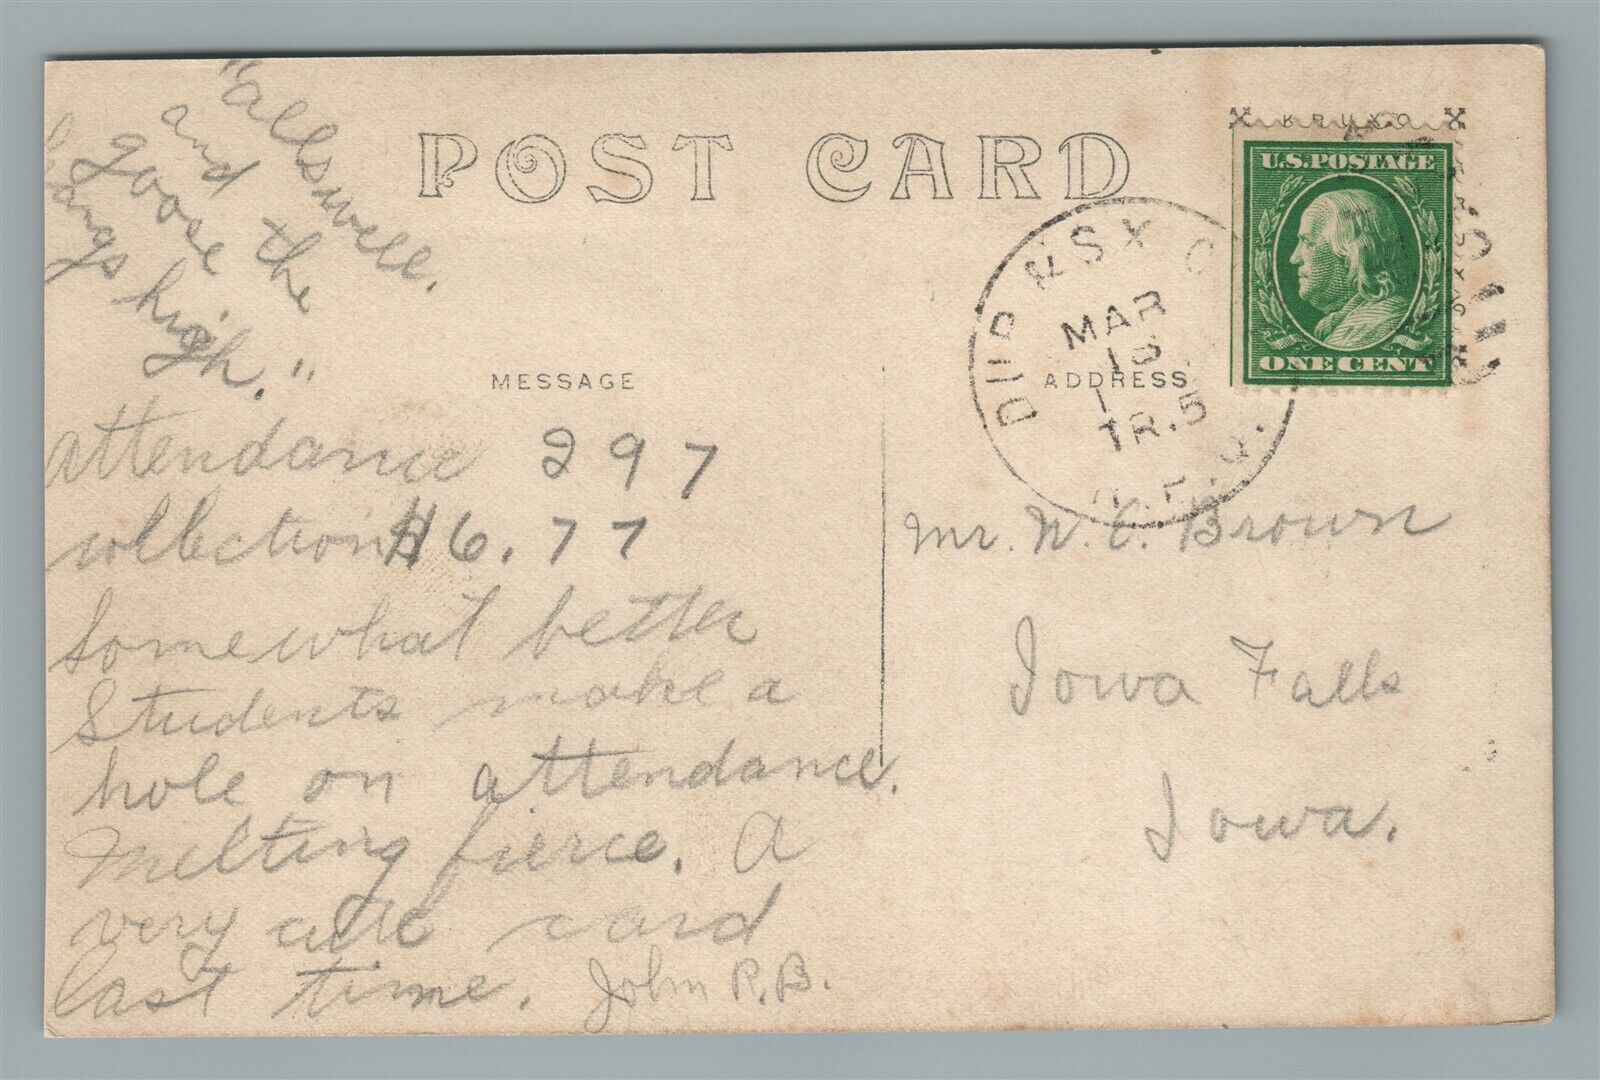 "alls well.
and the
goose
hangs high."
POST CARD
MESSAGE
ADDRESS
U.S. POSTAGE
ONE CENT
MAR
TR. 5
attendance 297
collection $6.77
Somewhat better
Students make a
hole on attendance.
Melting fierce. A
very cute card
last time. John R.B.
Mr. W. C. Brown
Iowa Falls
Iowa.